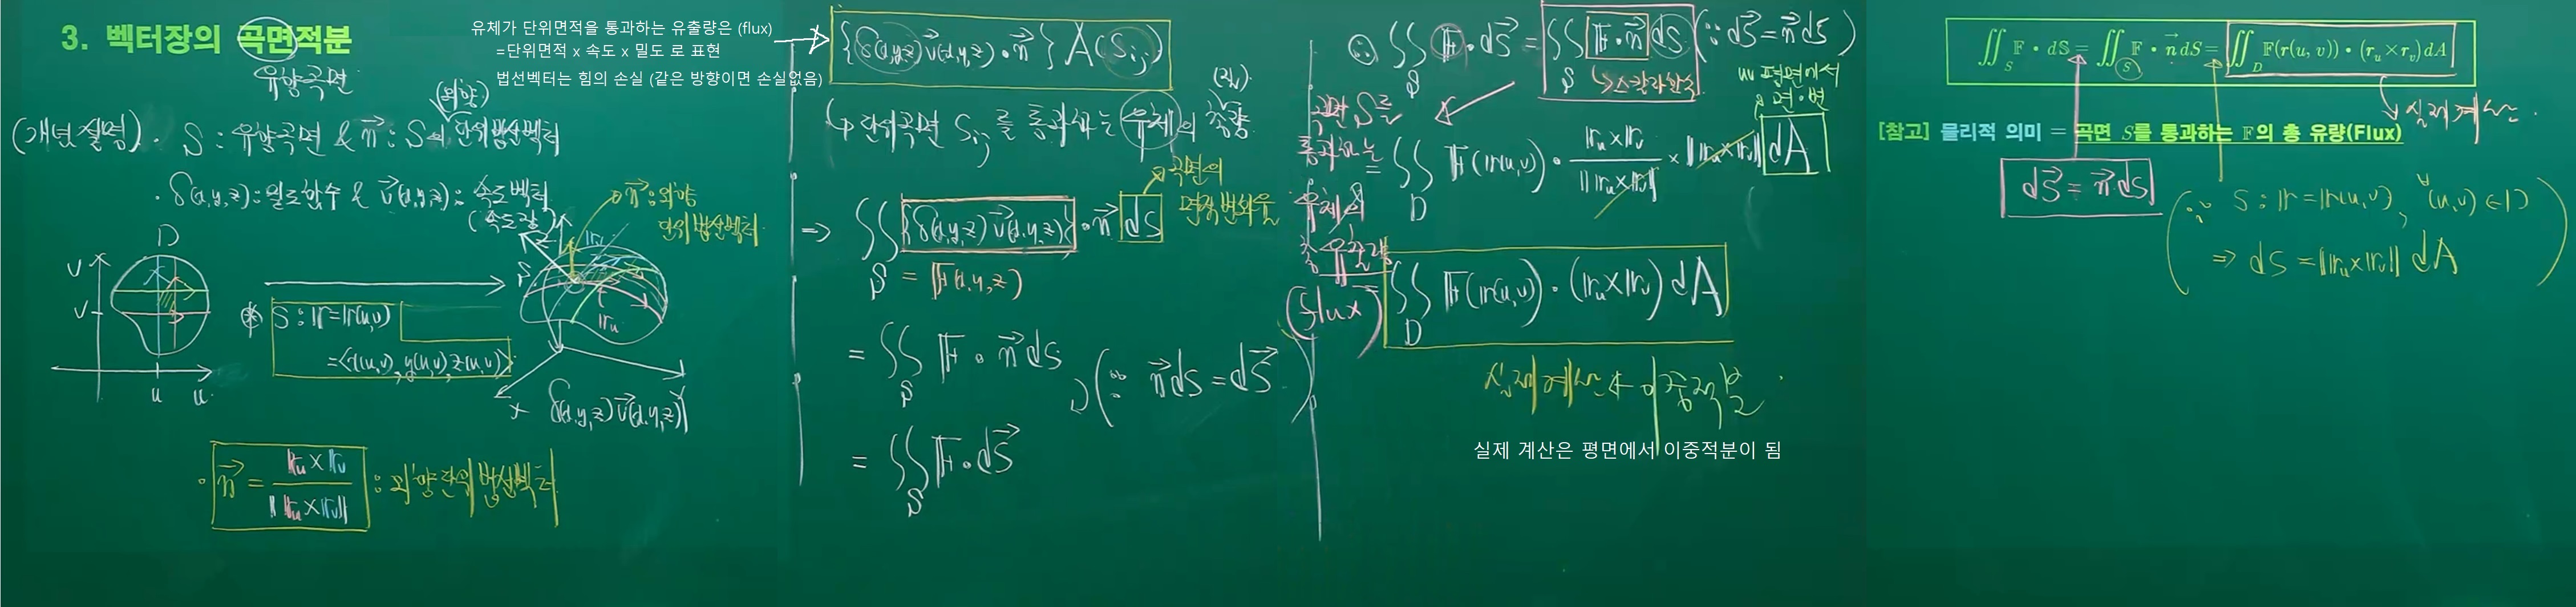 3. 벡터장의 곡면적분
유향곡면
유체가 단위면적을 통과하는 유출량은 (flux)
=단위면적 x 속도 x 밀도 로 표현
법선벡터는 힘의 손실 (같은 방향이면 손실없음)
(외향)
(개념 설명) · S : 유향곡면 & n⃗ : S의 단위법선벡터
· δ(x,y,z) : 밀도함수 & v⃗(x,y,z) : 속도벡터
(속도장)
n⃗ : 외향
단위법선벡터
D
v
v
u
u
S : 𝕣 = 𝕣(u,v)
= <x(u,v), y(u,v), z(u,v)>
S
z
𝕣ᵥ
𝕣ᵤ
x
y
δ(x,y,z) v⃗(x,y,z)
· n⃗ = 𝕣ᵤ×𝕣ᵥ / ||𝕣ᵤ×𝕣ᵥ|| : 외향단위법선벡터
{δ(x,y,z) v⃗(x,y,z) • n⃗} A(Sᵢⱼ)
(질)
↳ 단위곡면 Sᵢⱼ를 통과하는 유체의 총량
곡면의
면적변화율
⇒ ∬_S {δ(x,y,z) v⃗(x,y,z)} • n⃗ dS
= 𝔽(x,y,z)
= ∬_S 𝔽 • n⃗ dS
(∵ n⃗dS = dS⃗)
= ∬_S 𝔽 • dS⃗
∴ ∬_S 𝔽 • dS⃗ = ∬_S 𝔽 • n⃗ dS (∵ dS⃗ = n⃗dS)
↳ 스칼라함수
uv 평면에서
면·변
곡면 S를
통과하는
유체의
총 유출량
(flux)
= ∬_D 𝔽(𝕣(u,v)) • 𝕣ᵤ×𝕣ᵥ / ||𝕣ᵤ×𝕣ᵥ|| × ||𝕣ᵤ×𝕣ᵥ|| dA
= ∬_D 𝔽(𝕣(u,v)) • (𝕣ᵤ×𝕣ᵥ) dA
실제계산 ← 이중적분
실제 계산은 평면에서 이중적분이 됨
∬_S 𝔽 • d𝕊 = ∬_S 𝔽 • n⃗ dS = ∬_D 𝔽(r(u, v)) • (rᵤ×rᵥ)dA
↳ 실제계산.
[참고] 물리적 의미 = 곡면 S를 통과하는 𝔽의 총 유량(Flux)
dS⃗ = n⃗dS
(∵ S : 𝕣 = 𝕣(u,v), ∀(u,v)∈D
⇒ dS = ||𝕣ᵤ×𝕣ᵥ|| dA)